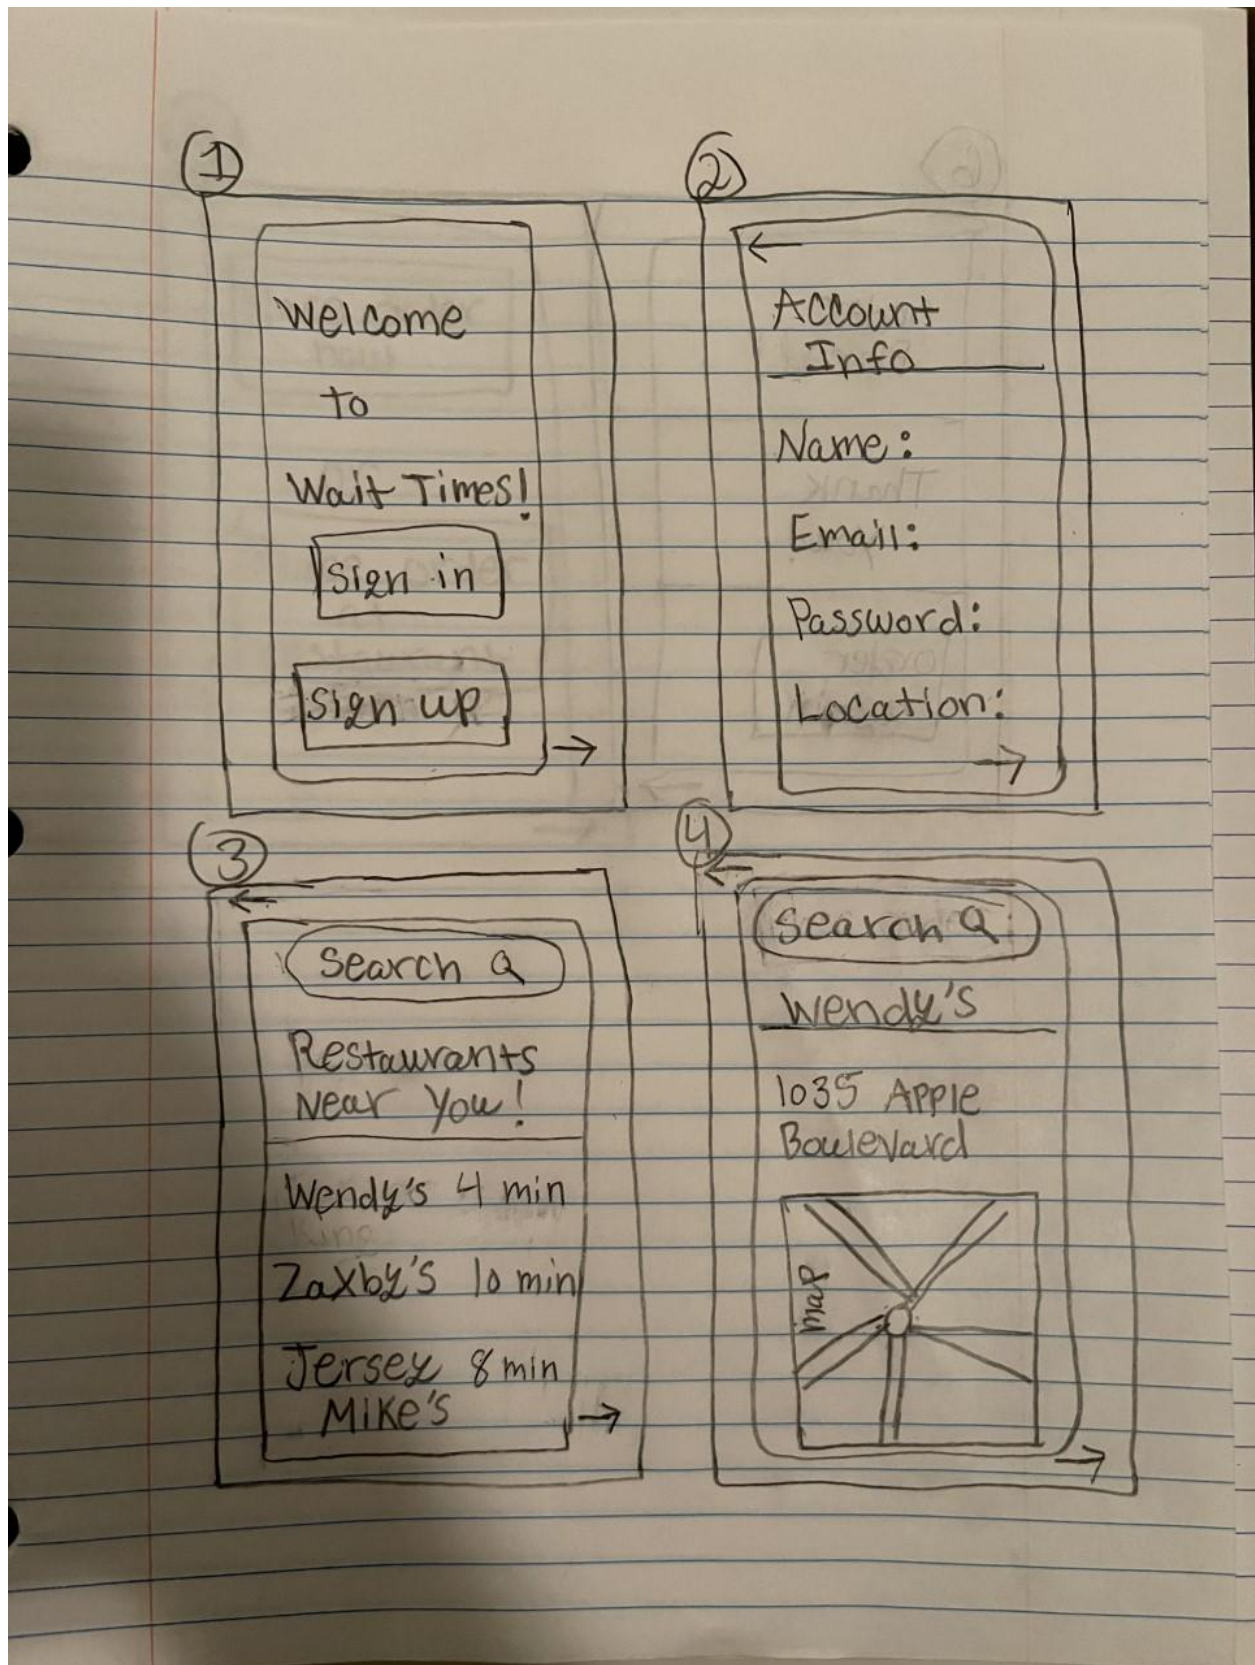 1
Welcome
to
Wait Times!
Sign in
Sign up
2
Account
Info
Name:
Email:
Password:
Location:
3
Search
Restaurants
Near You!
Wendy's 4 min
King
Zaxby's 10 min
Jersey 8 min
Mike's
4
Search
Wendy's
1035 Apple
Boulevard
map
6
Thank
order